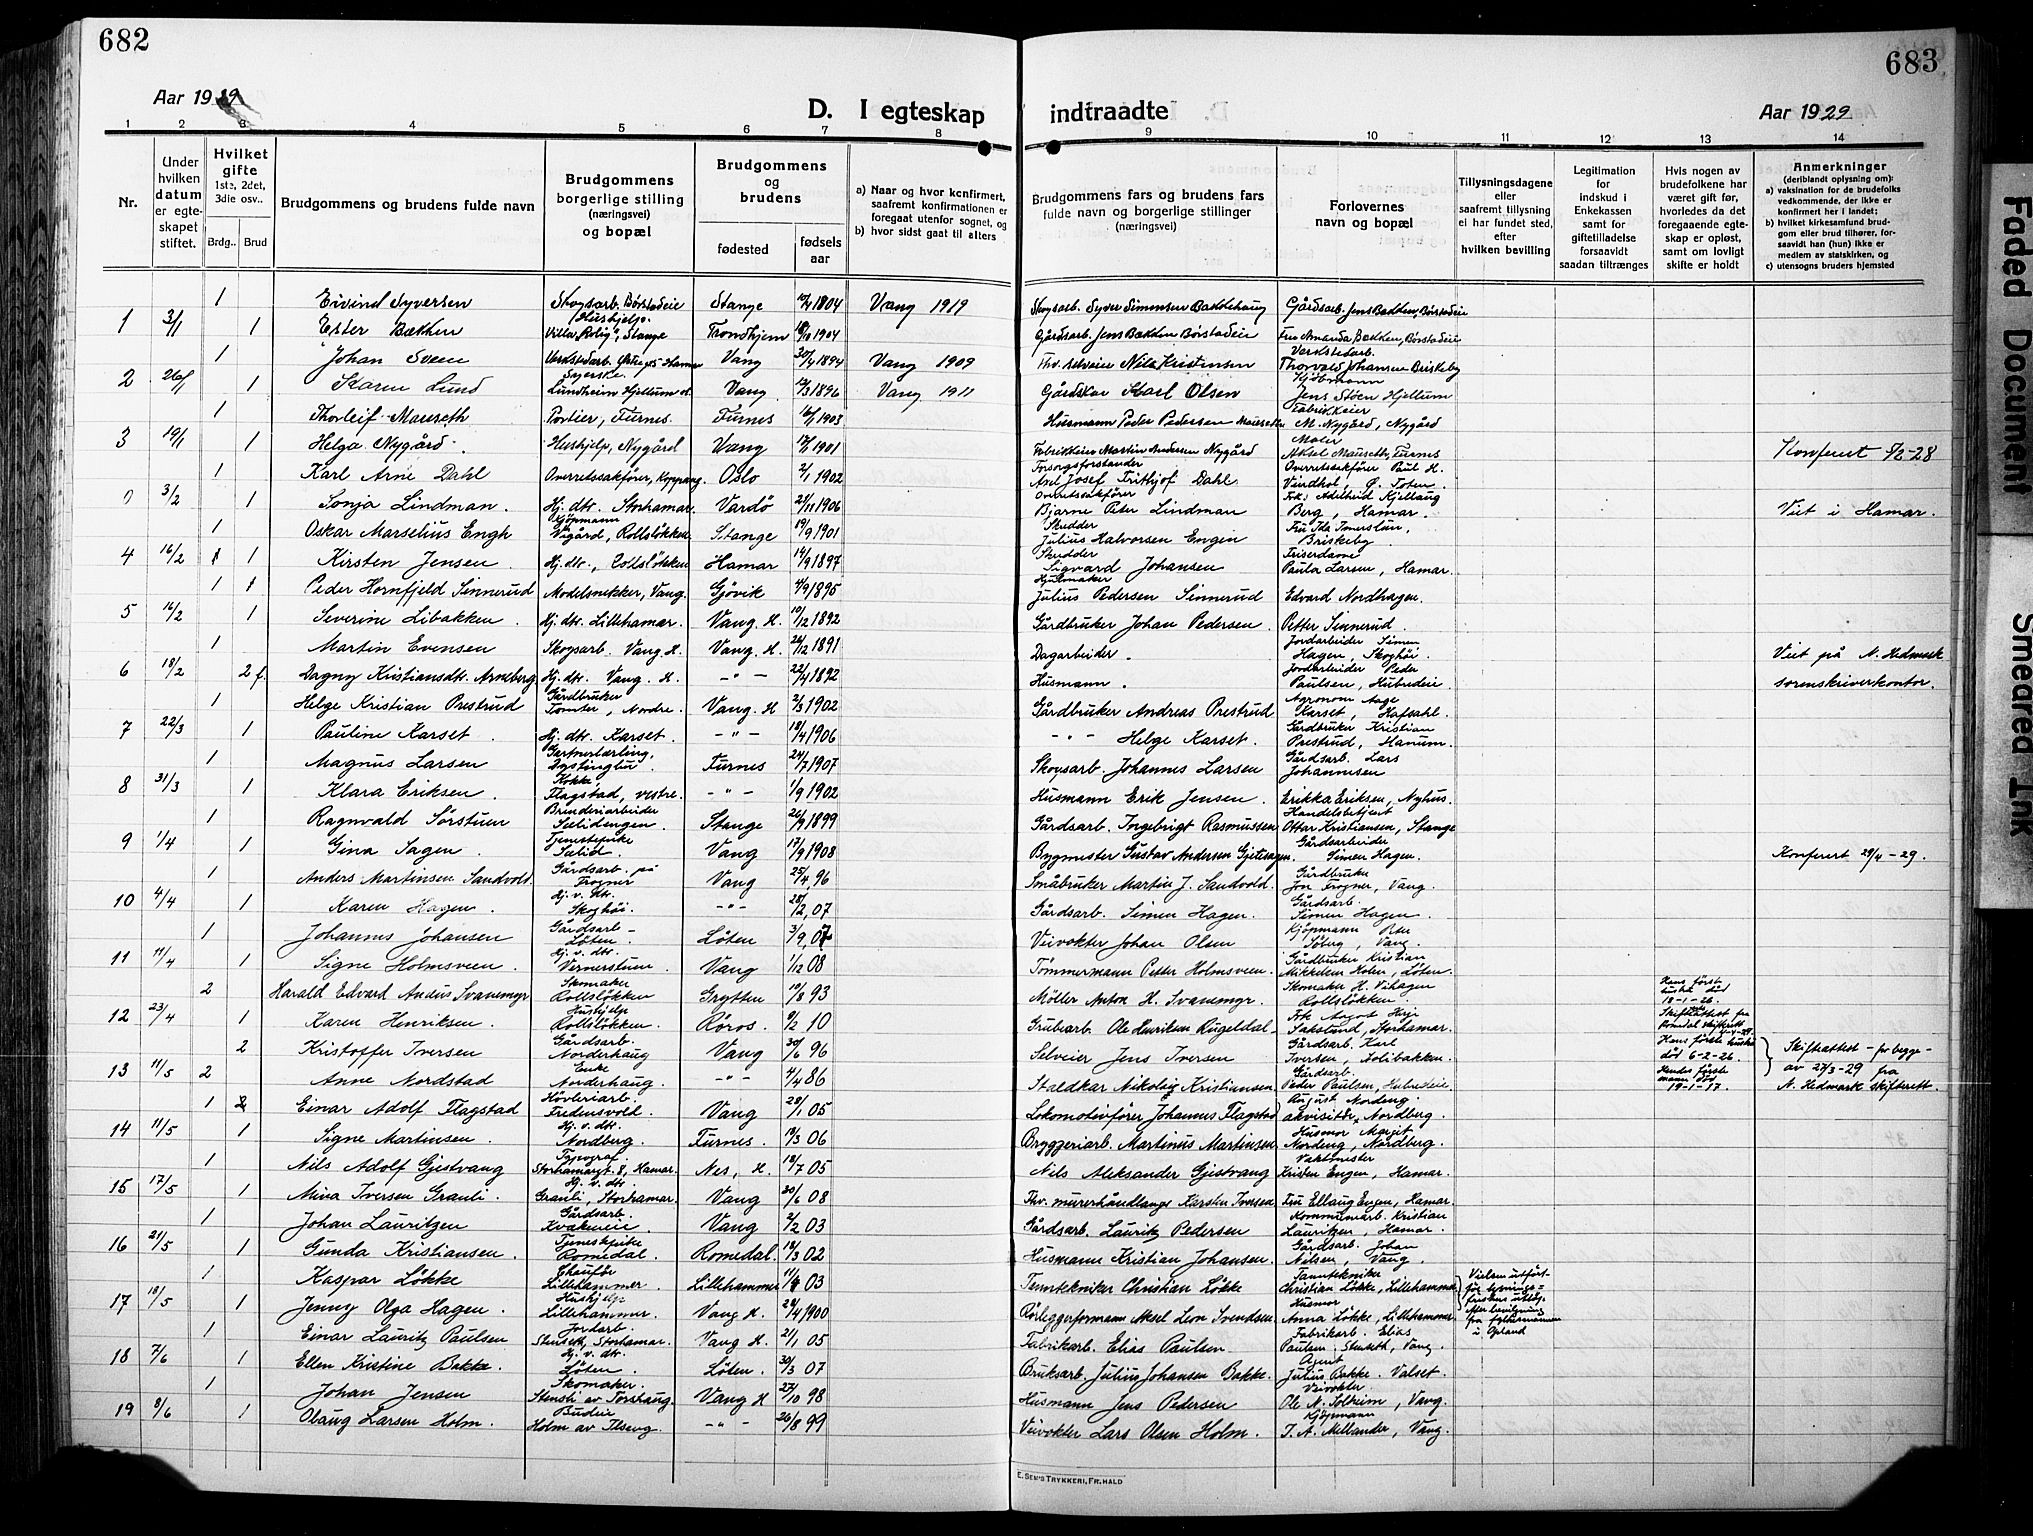 682
683
Aar 1929
D. I egteskap indtraadte
Aar 1929
1 2 3 4 5 6 7 8 9 10 11 12 13 14
Nr.
Under hvilken datum er egteskapet stiftet.
Hvilket gifte
1ste, 2det, 3die osv..
Brdg.. Brud
Brudgommens og brudens fulde navn
Brudgommens borgerlige stilling (næringsvei) og bopæl
Brudgommens og brudens
fødested
fødsels aar
a) Naar og hvor konfirmert, saafremt konfirmationen er foregaat utenfor sognet, og
b) hvor sidst gaat til alters
Brudgommens fars og brudens fars fulde navn og borgerlige stillinger (næringsvei)
Forlovernes navn og bopæl
Tillysningsdagene eller saafremt tillysning ei har fundet sted, efter hvilken bevilling
Legitimation for indskud i Enkekassen samt for giftetilladelse forsaavidt saadan tiltrænges
Hvis nogen av brudefolkene har været gift før, hvorledes da det foregaaende egteskap er opløst, samt om lovligt skifte er holdt
Anmerkninger
(deriblandt oplysning om):
a) vaksination for de brudefolks vedkommende, der ikke er konfirmert her i landet;
b) hvilket kirkesamfund brudgom eller brud tilhører, forsaavidt han (hun) ikke er medlem av statskirken, og
c) utensogns bruders hjemsted
1 Eivind Syversen Skogsarb. Børstadeie Stange 1904 Vang 1919 Skogsarb. Syver Simensen Bakkehaug Gårdsarb. Jens Bakken, Børstadeie
3/1 1 Ester Bakken Hushjelp. Villa "Rolig", Stange Trondhjem 1904 Gårdsarb. Jens Bakken Børstadeie Fru Amanda Bakken, Børstadeie
1 Johan Sveen Vang 1894 Vang 1909 Nils Kristinsen Verkstedarb. Thorvald Johansen Briskeby
2 26/1 1 Karen Lund Syerske. Lundheim Hjellum st. Vang 1896 Vang 1911 Gårdskar Karl Olsen Kjøbmann Jens Støen Hjellum
1 Thorleif Mauseth Portier, Furnes Furnes 16/1 1903 Husmann Peder Pedersen Mauseth Fabrikkeier M. Nygård, Nygård
3 19/1 1 Helga Nygård. Hushjelp, Nygård Vang 1901 Fabrikkeier Martin Andersen Nygård Maler Aksel Mauseth, Furnes Konferert 5/2-28
1 Karl Arne Dahl Overretssakfører, Koppang. Oslo 2/1 1902 Forsorgsforstander Axel Josef Frithjof Dahl Overretssakfører Paul H. Vindhol, Ø. Toten.
0 3/2 1 Sonja Lindman. Hj. dtr. Storhamar. Vardø 21/11 1906 Overretssakfører Bjarne Peter Lindman Frk. Adelheid Kjellaug Berg, Hamar. Viet i Hamar.
1 Oskar Marselius Engh Kjøpmann Vigård, Rollsløkken Stange 19/9 1901 Skredder Julius Halvorsen Engen Fru Ida Tomerslun, Briskeby.
4 16/2 1 Kirsten Jensen. Hj. dtr., Rollsløkken Hamar 14/9 1897 Skredder Sigvard Johansen Friserdame Paula Larsen, Hamar.
1 Peder Hornfjeld Sinnerud Modelsnekker, Vang. Gjøvik 4/9 1895 Hjulmaker Julius Pedersen Sinnerud Edvard Nordhagen.
5 16/2 1 Severine Libakken. Hj. dtr. Lillehamar. Vang. H. 10/12 1892 Gårdbruker Johan Pedersen. Petter Sinnerud.
1 Martin Evensen Skogsarb. Vang. H. Vang. H. 26/12 1891 Dagarbeider. Jordarbeider Simen Hagen, Skoghöi. Viet på N. Hedmark
6 18/2 2 f. Dagny Kristiansdtr. Arneberg Hj. dtr. Vang. H. - " - 22/4 1892 Husmann. Jordarbeider Peder Paulsen, Hubredeie. sorenskriverkontor.
1 Helge Kristian Prestrud Gårdbruker Tomter, Nordre. Vang. H 2/3 1902 Gårdbruker Andreas Prestrud Agronom Aage Karset, Hafsahl.
7 22/3 1 Pauline Karset. Hj. dtr. Karset. - " - 18/4 1906 - " - Helge Karset. Gårdbruker Kristian Prestrud, Hanum.
1 Magnus Larsen Gartnerlærling, Dystingbu. Furnes 24/7 1907 Skogsarb. Johannes Larsen Gårdsarb. Lars Johannesen
8 31/3 1 Klara Eriksen. Kokke Flagstad, vestre. - " - 1/9 1902 Husmann Erik Jensen. Erikka Eriksen, Nyhus.
1 Ragnvald Sørstuen Brenderiarbeider Sælidengen. Stange 26/9 1899 Gårdsarb. Ingebrigt Rasmussen Handelsbetjent Ottar Kristiansen, Stange
9 1/4 1 Gina Sagen. Tjenestepike Sælid. Vang 17/9 1908 Bygmester Gustav Andersen Gjetesagen. Gårdsarbeider Simen Hagen. Konferert 29/4-29.
1 Anders Martinsen Sandvold Gårdsarb. på Frogner Vang 25/4, 96 Småbruker Martin J. Sandvold. Gårdbruker Jon Frogner, Vang.
10 4/4 1 Karen Hagen. Hj. v. dtr. Skoghöi. - " - 28/2, 07 Gårdsarb. Simen Hagen. Gårdsarb. Simen Hagen.
1 Johannes Johansen Gårdsarb - Løten. Løten 3/9, 07 Veivokter Johan Olsen Kjöpmann Peter Söberg, Vang.
11 11/4 1 Signe Holmsveen. Hj. v. dtr. Vernerstuen. Vang 1/12 08 Tömmermann Petter Holmsveen. Gårdbruker Kristian Mikkelsen Holen, Løten.
2 Harald Edvard Andus Svanemyr Skomaker Rollsløkken Grytten 10/8 93 Möller Anton H. Svanemyr. Skomaker H. Vihagen Rollsløkken. Hans første hustru död 18-1-26. Skifteattest fra Romedal skifterett
12 23/4 1 Karen Henriksen. Hushjelp Rollsløkken. Röros. 9/2 10 Grubearb. Ole Henriksen Rugeldal - Sakslund, Storhamar.
2 Kristoffer Iversen Gårdsarb. Norderhaug Vang 30/6 96 Selveier Jens Iversen Gårdsarb. Karl Iversen, Aolibakken. Hans første hustru död 6-2-26. Skifteattest - for begge -
13 11/5 2 Anne Nordstad Enke Norderhaug. - " - 4/4 86 Staldkar Nikolai Kristiansen Gårdsarb. Peder Paulsen, Hubredeie Hendes første mann död 19-1-17. av 27/3-29 fra N. Hedmark skifterett.
1 Einar Adolf Flagstad Hövleriarb. Fredensvold. Vang 28/1 05 Lokomotivfører Johannes Flagstad August Nordeng. akvisitör, Nordberg.
14 11/5 1 Signe Martinsen. Hj. v. dtr. Nordberg. Furnes. 18/3 06 Bryggeriarb. Martinus Martinsen Husmor Margit Nordeng, Nordberg.
1 Nils Adolf Gjestvang Typograf Storhamargt. 8, Hamar. Nes, H. 18/7 05 Nils Aleksander Gjestvang Vaktmester Kristen Engen, Hamar.
15 17/5 1 Mina Iversen Granli. Hj. v. dtr. Granli, Storhamar. Vang 30/6 08 Thv. murerhåndlanger Karsten Iversen Fru Ellaug Engen, Hamar.
1 Johan Lauritzen Gårdsarb. Kvakeneie. Vang 2/2 03 Gårdsarb. Lauritz Pedersen Kommunearb. Kristian Lauritzen, Hamar.
16 21/5 1 Gunda Kristiansen. Tjenestepike Romedal. Romedal. 18/3 02 Husmann Kristian Johansen. Gårdsarb. Johan Nilsen, Vang.
1 Kaspar Løkke Chauför Lillehammer. Lillehammer 03 Tanntekniker Christian Løkke Tanntekniker Christian Løkke, Lillehammer Vielsen utført
17 18/5 1 Jenny Olga Hagen. Hushjelp Lillehammer. Vang H. 29/4 1900 Rørleggerformann Aksel Leon Svendsen Husmor Anna Løkke, Lillehammer. efter bevilgning fra fylkesmannen i Opland
1 Einar Lauritz Paulsen Jordarb. Stenseth, Storhamar. Vang H. 2/1 05 Fabrikarb. Elias Paulsen. Fabrikarb. Elias Paulsen. Stenseth, Vang.
18 7/6 1 Ellen Kristine Bakke. Hj. v. dtr. Løten. Løten. 30/3 07 Bruksarb. Julius Johansen Bakke. Agent Julius Bakke. Valset.
1 Johan Jensen Skomaker. Stensli av Torshaug. Vang H 27/10 98 Husmann Jens Pedersen Veivokter Ole N. Solheim, Vang.
19 8/6 1 Olaug Larsen Holm. Budeie Holm av Ilseng. - " - 26/8 99 Veivokter Lars Olsen Holm. Kjöpmann J. A. Mellander, Vang.
E. SEM'S TRYKKERI, FR.HALD
Faded Document
Smeared Ink